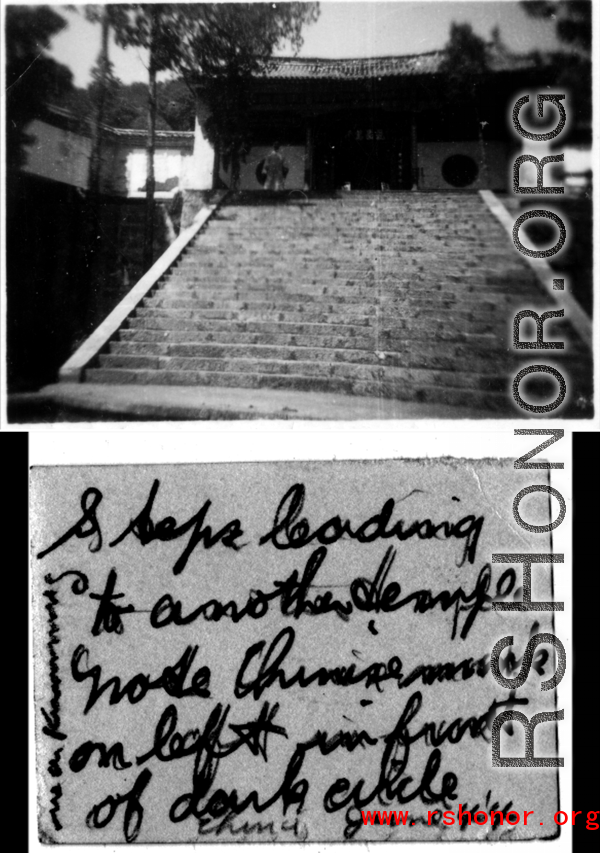 Steps leading
to another temple
Note Chinese
on left in front
of dark circle
China June
near Kunming
RSHONOR.ORG
www.rshonor.org